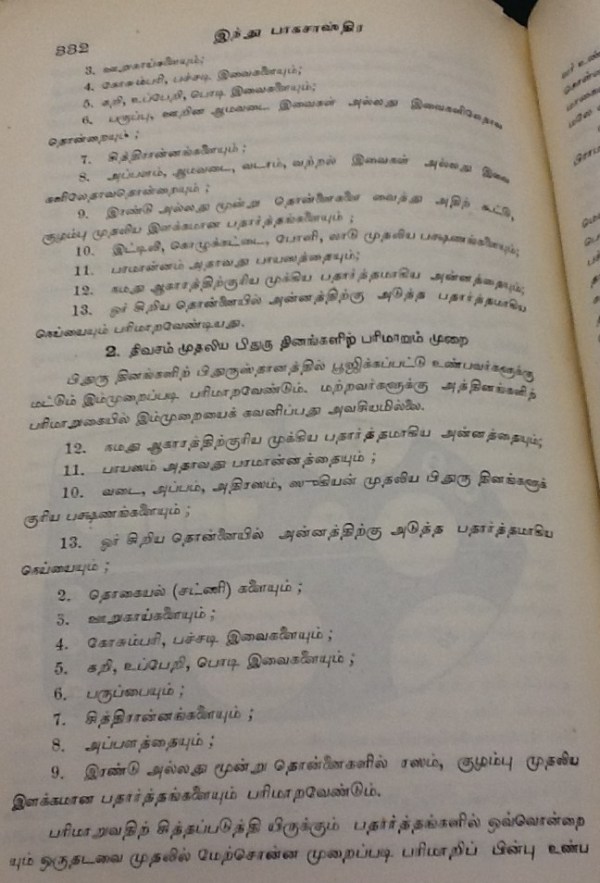 332
இந்து பாகசாஸ்திர
3. ஊறுகாய்களையும்;
4. கோசும்பரி, பச்சடி இவைகளையும்;
5. கறி, உப்பேறி, பொடி இவைகளையும்;
6. பருப்பு, ஊறின ஆமவடை இவைகள் அல்லது இவைகளிலேதாவ
தொன்றையும் ;
7. சித்திரான்னங்களையும் ;
8. அப்பளம், ஆமவடை, வடாம், வற்றல் இவைகள் அல்லது இவை
களிலேதாவதொன்றையும் ;
9. இரண்டு அல்லது மூன்று தொன்னைகளை வைத்து அதிற் கூட்டு,
குழம்பு முதலிய இளக்கமான பதார்த்தங்களையும் ;
10. இட்டிலி, கொழுக்கட்டை, போளி, லாடு முதலிய பக்ஷணங்களையும்;
11. பாமான்னம் அதாவது பாயஸத்தையும்;
12. நமது ஆகாரத்திற்குரிய முக்கிய பதார்த்தமாகிய அன்னத்தையும்;
13. ஓர் சிறிய தொன்னையில் அன்னத்திற்கு அடுத்த பதார்த்தமாகிய
நெய்யையும் பரிமாறவேண்டியது.
2. திவசம் முதலிய பிதுரு தினங்களில் பரிமாறும் முறை
பிதுரு தினங்களிற் பிதுருஸ்தானத்தில் பூஜிக்கப்பட்டு உண்பவர்களுக்கு
மட்டும் இம்முறைப்படி பரிமாறவேண்டும். மற்றவர்களுக்கு அத்தினங்களிற்
பரிமாறுகையில் இம்முறையைக் கவனிப்பது அவசியமில்லை.
12. நமது ஆகாரத்திற்குரிய முக்கிய பதார்த்தமாகிய அன்னத்தையும்;
11. பாயஸம் அதாவது பாமான்னத்தையும் ;
10. வடை, அப்பம், அதிரஸம், ஸுகியன் முதலிய பிதுரு தினங்களுக்
குரிய பக்ஷணங்களையும் ;
13. ஓர் சிறிய தொன்னையில் அன்னத்திற்கு அடுத்த பதார்த்தமாகிய
நெய்யையும் ;
2. தொகையல் (சட்ணி) களையும் ;
3. ஊறுகாய்களையும் ;
4. கோசும்பரி, பச்சடி இவைகளையும் ;
5. கறி, உப்பேறி, பொடி இவைகளையும் ;
6. பருப்பையும் ;
7. சித்திரான்னங்களையும் ;
8. அப்பளத்தையும் ;
9. இரண்டு அல்லது மூன்று தொன்னைகளில் ரஸம், குழம்பு முதலிய
இளக்கமான பதார்த்தங்களையும் பரிமாறவேண்டும்.
பரிமாறுவதிற் சித்தப்படுத்தி யிருக்கும் பதார்த்தங்களில் ஒவ்வொன்றை
யும் ஒருதடவை முதலில் மேற்சொன்ன முறைப்படி பரிமாறிப் பின்பு உண்ப